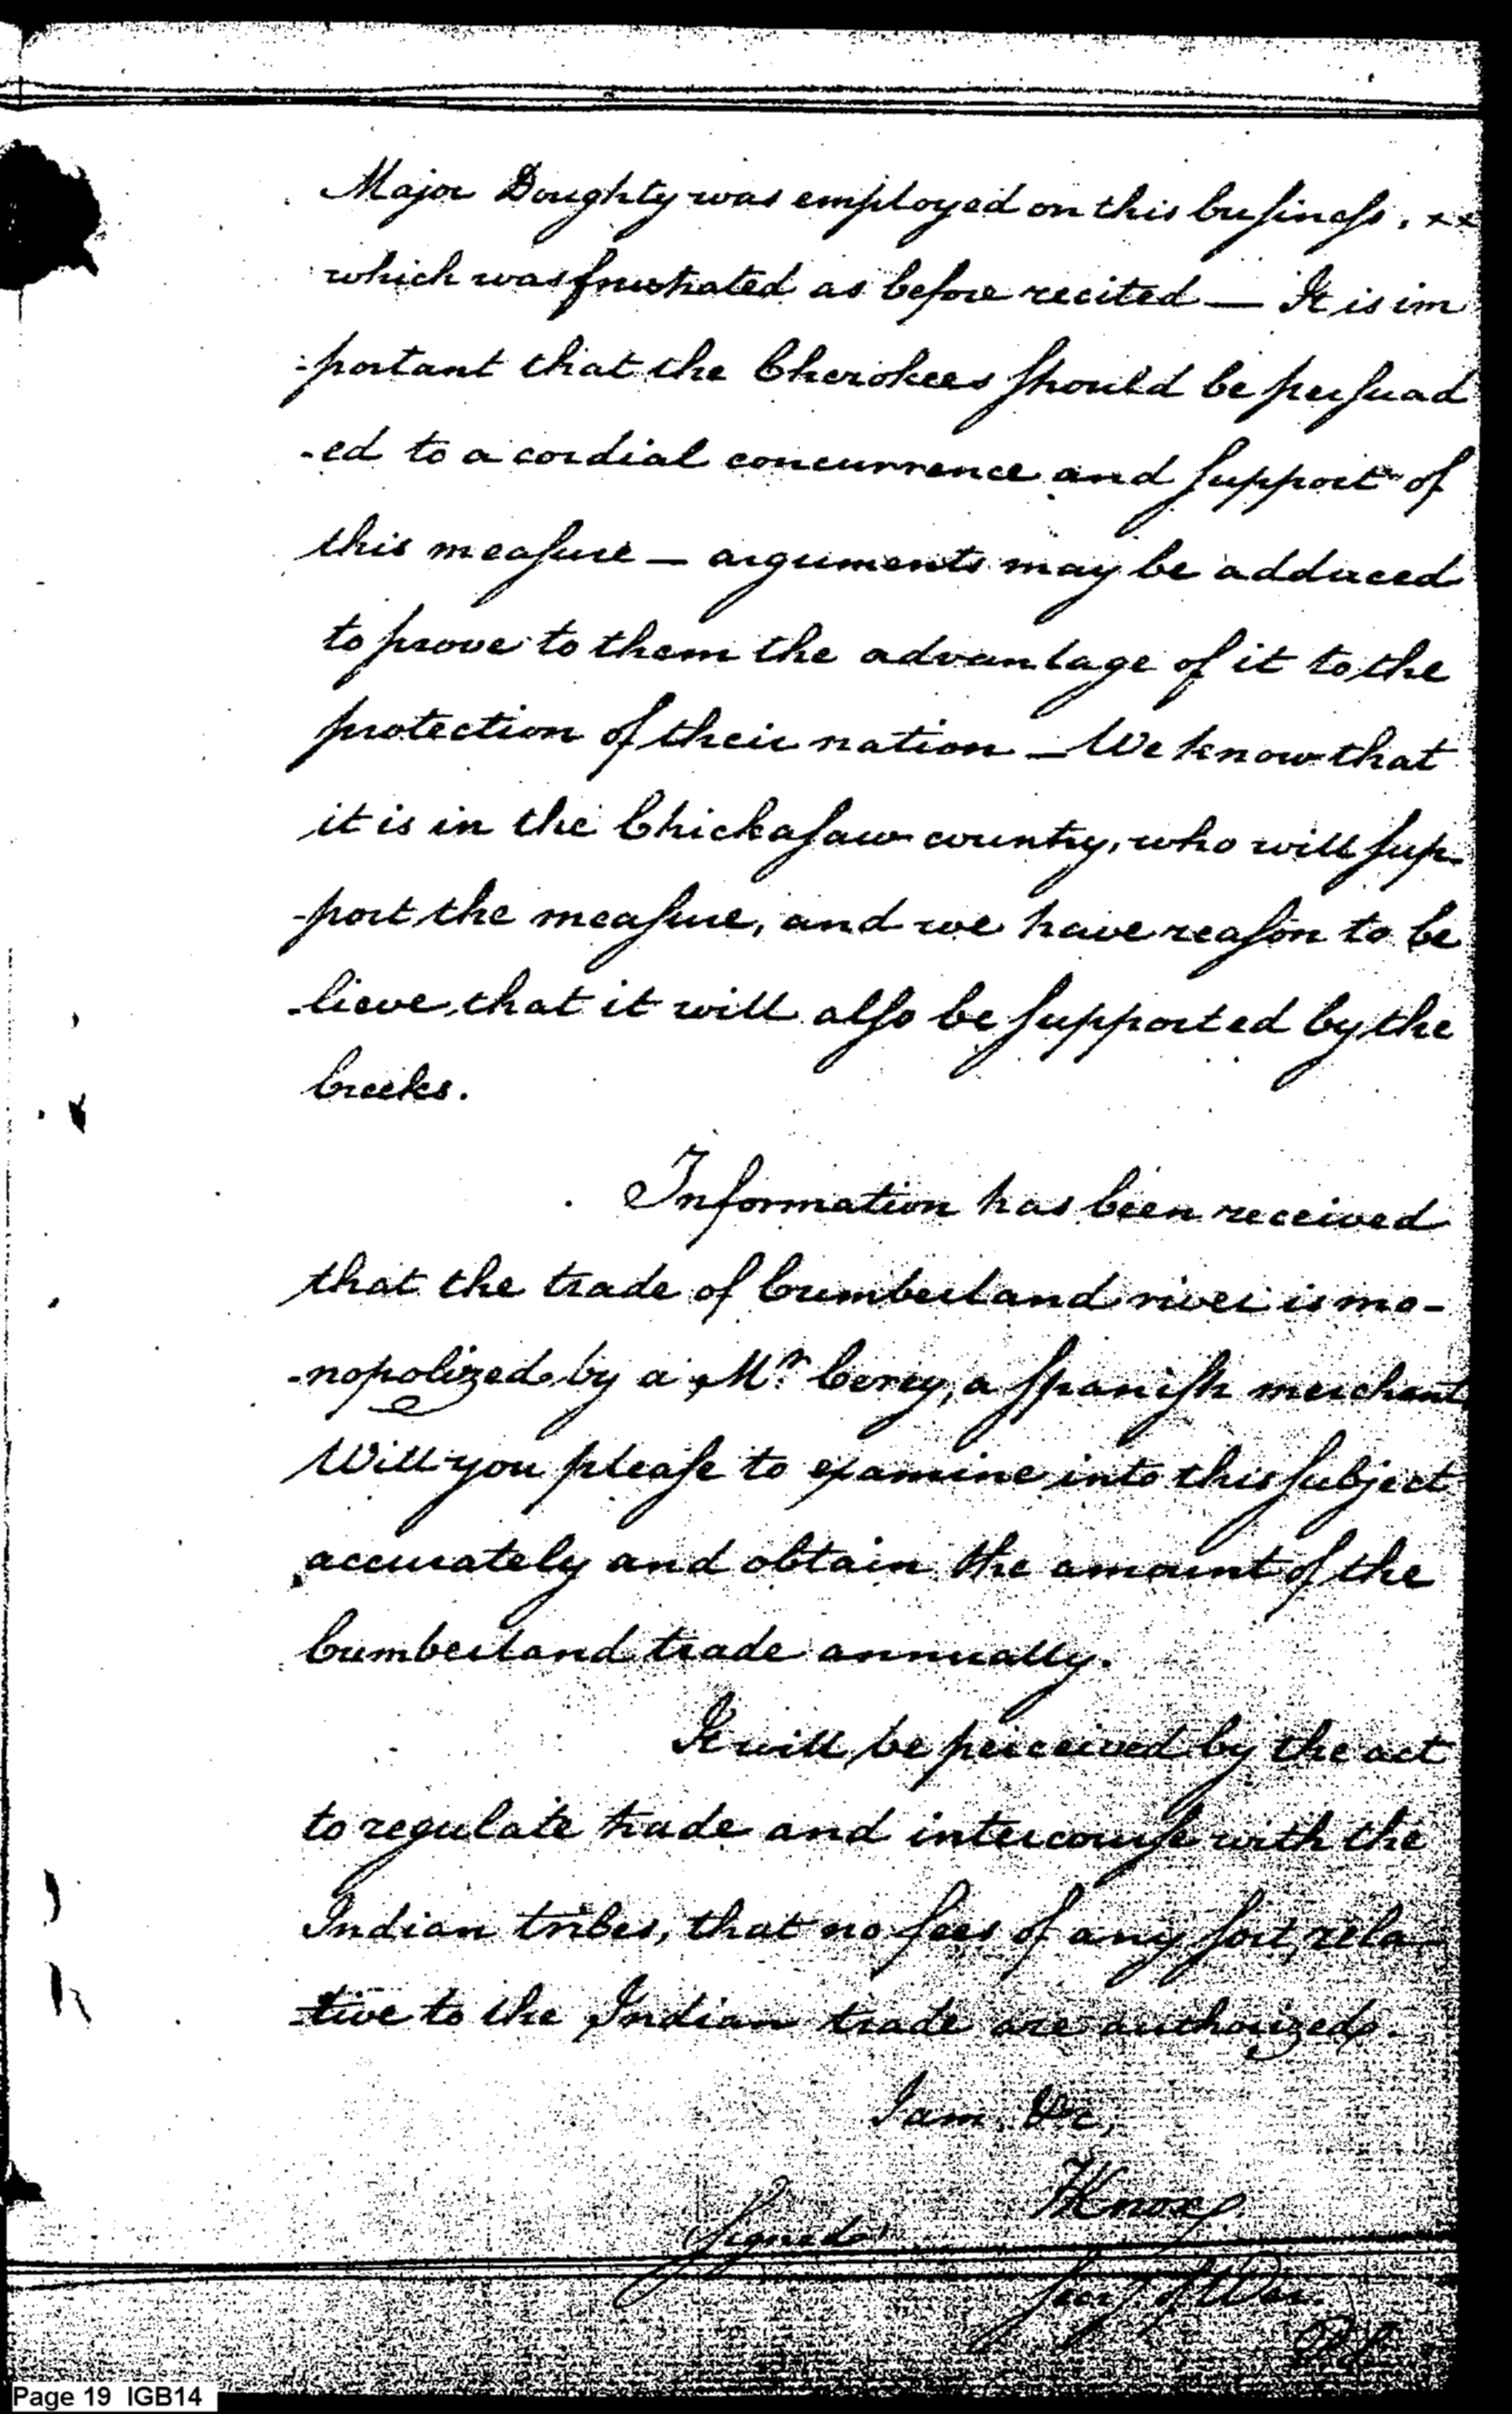 Major Doughty was employed on this business. xx
which was frustrated as before recited — It is im
-portant that the Cherokees should be persuad
-ed to a cordial concurrence and support of
this measure — arguments may be adduced
to prove to them the advantage of it to the
protection of their nation — We know that
it is in the Chickasaw country, who will sup-
-port the measure, and we have reason to be
-lieve, that it will also be supported by the
Creeks.
Information has been received
that the trade of Cumberland river is mo-
-nopolized by a Mr. Cerey, a Spanish merchant
Will you please to examine into this subject
accurately and obtain the amount of the
Cumberland trade annually.
It will be perceived by the act
to regulate trade and intercourse with the
Indian tribes, that no fees of any sort, rela-
-tive to the Indian trade are authorized.
I am &c,
HKnox
Signed
Secy of War.
Page 19 IGB14